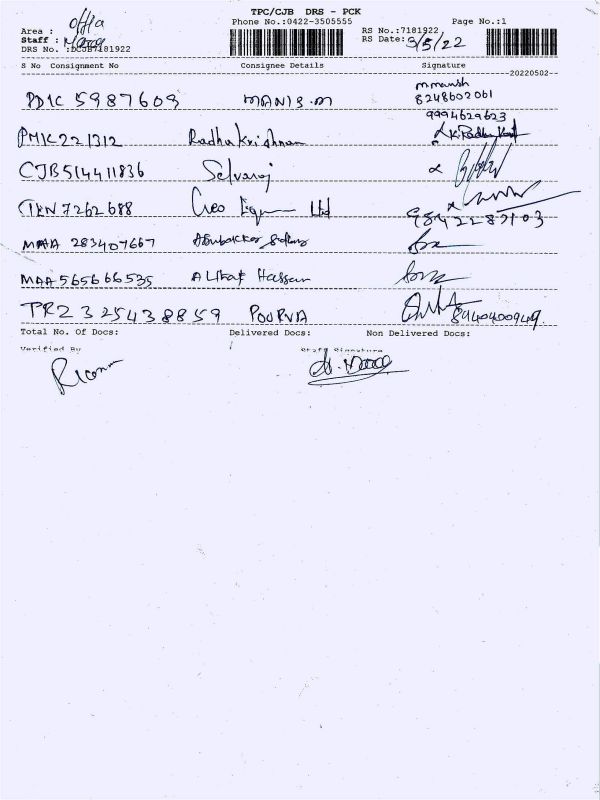 TPC/CJB DRS - PCK
Phone No.:0422-3505555
Page No.:1
Area : offa
Staff :
DRS No. :DCJB7181922
RS No.:7181922
RS Date: 3/5/22
S No Consignment No Consignee Details Signature
20220502
PDIC 5987609 MANIS.M
8248602061
9994629623
PMK221312 Radha Krishnan
CJB514411836 Selvaraj
7262688 Ltd
9842287103
MAA 283407667
MAA 565666535 Hassan
TRZ 325438859 POORVA 8940400949
Total No. Of Docs: Delivered Docs: Non Delivered Docs:
Verified By Staff Signature